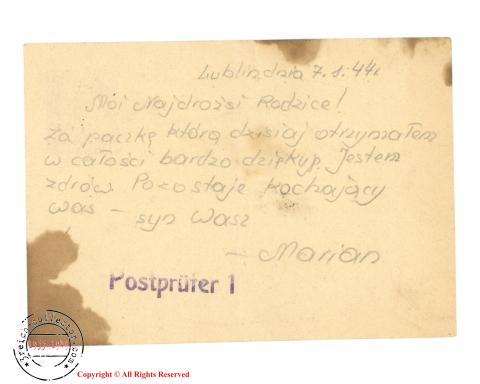 Lublin, dnia 7.1.44r
Moi Najdrożsi Rodzice!
Za paczkę którą dzisiaj otrzymałem
w całości bardzo dziękuję. Jestem
zdrów. Pozostaję kochający
was – syn Wasz
– Marian.
Postprüfer 1
3reichcollector.com
1933-1945
Copyright © All Rights Reserved